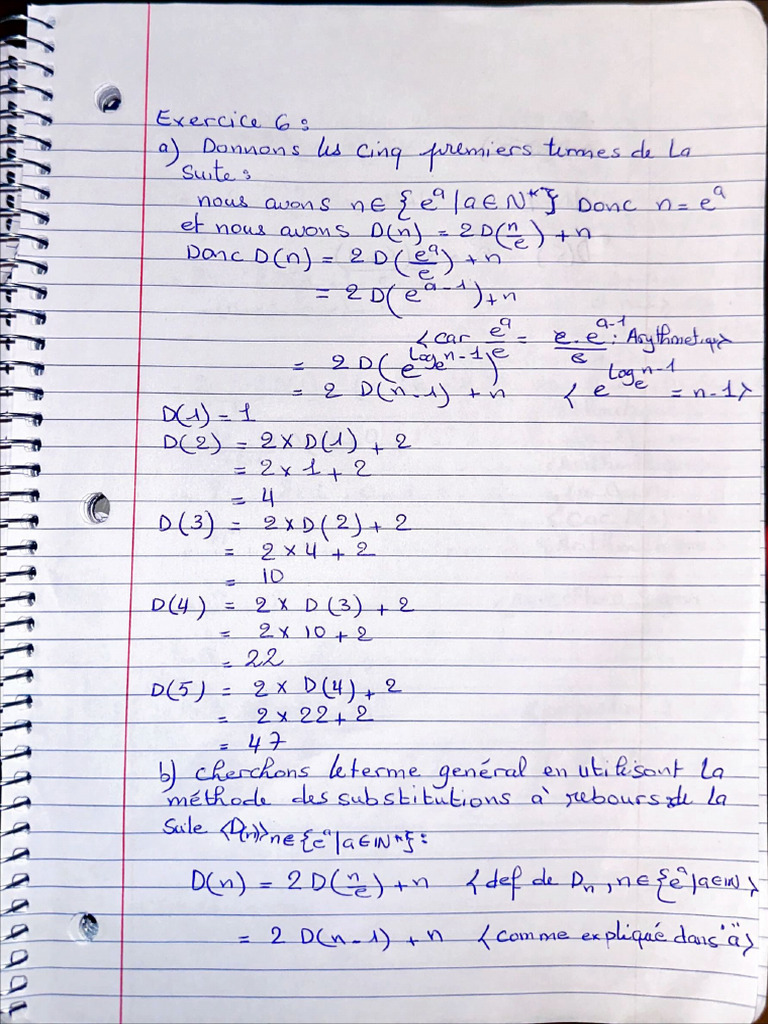 Exercice 6 :
a) Donnons les cinq premiers termes de la
suite :
nous avons n ∈ { e^a | a ∈ N* } Donc n = e^a
et nous avons D(n) = 2 D(n/e) + n
Donc D(n) = 2 D(e^a/e) + n
= 2 D(e^(a-1)) + n
< car e^a/e = e·e^(a-1)/e : Arythmetique >
= 2 D(e^(log_e n-1))
= 2 D(n-1) + n < e^(log_e n-1) = n-1 >
D(1) = 1
D(2) = 2 x D(1) + 2
= 2 x 1 + 2
= 4
D(3) = 2 x D(2) + 2
= 2 x 4 + 2
= 10
D(4) = 2 x D(3) + 2
= 2 x 10 + 2
= 22
D(5) = 2 x D(4) + 2
= 2 x 22 + 2
= 47
b) cherchons le terme genéral en utilisant la
méthode des substitutions à rebours de la
suite <D(n)> n ∈ {e^a | a ∈ IN*} :
D(n) = 2 D(n/e) + n < def de Dn, n ∈ {e^a | a ∈ IN} >
= 2 D(n-1) + n < comme expliqué dans "a" >